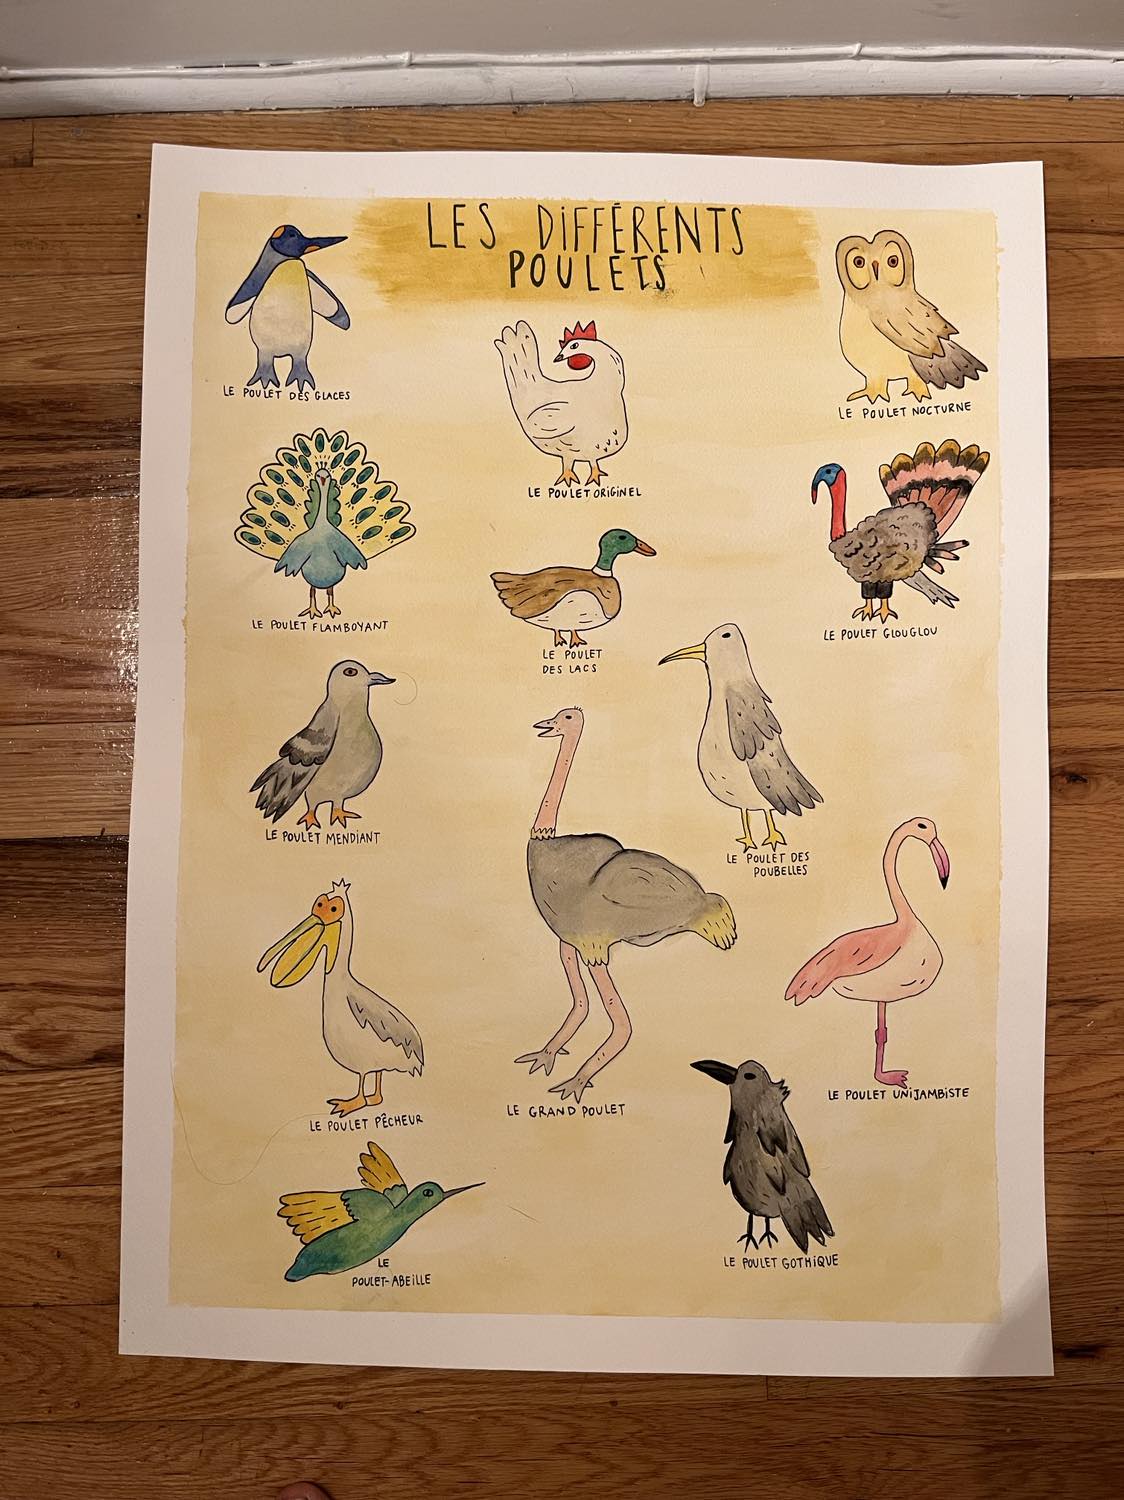 LES DIFFÉRENTS
POULETS
LE POULET DES GLACES
LE POULET ORIGINEL
LE POULET NOCTURNE
LE POULET FLAMBOYANT
LE POULET
DES LACS
LE POULET GLOUGLOU
LE POULET MENDIANT
LE POULET DES
POUBELLES
LE POULET PÊCHEUR
LE GRAND POULET
LE POULET UNIJAMBISTE
LE
POULET-ABEILLE
LE POULET GOTHIQUE